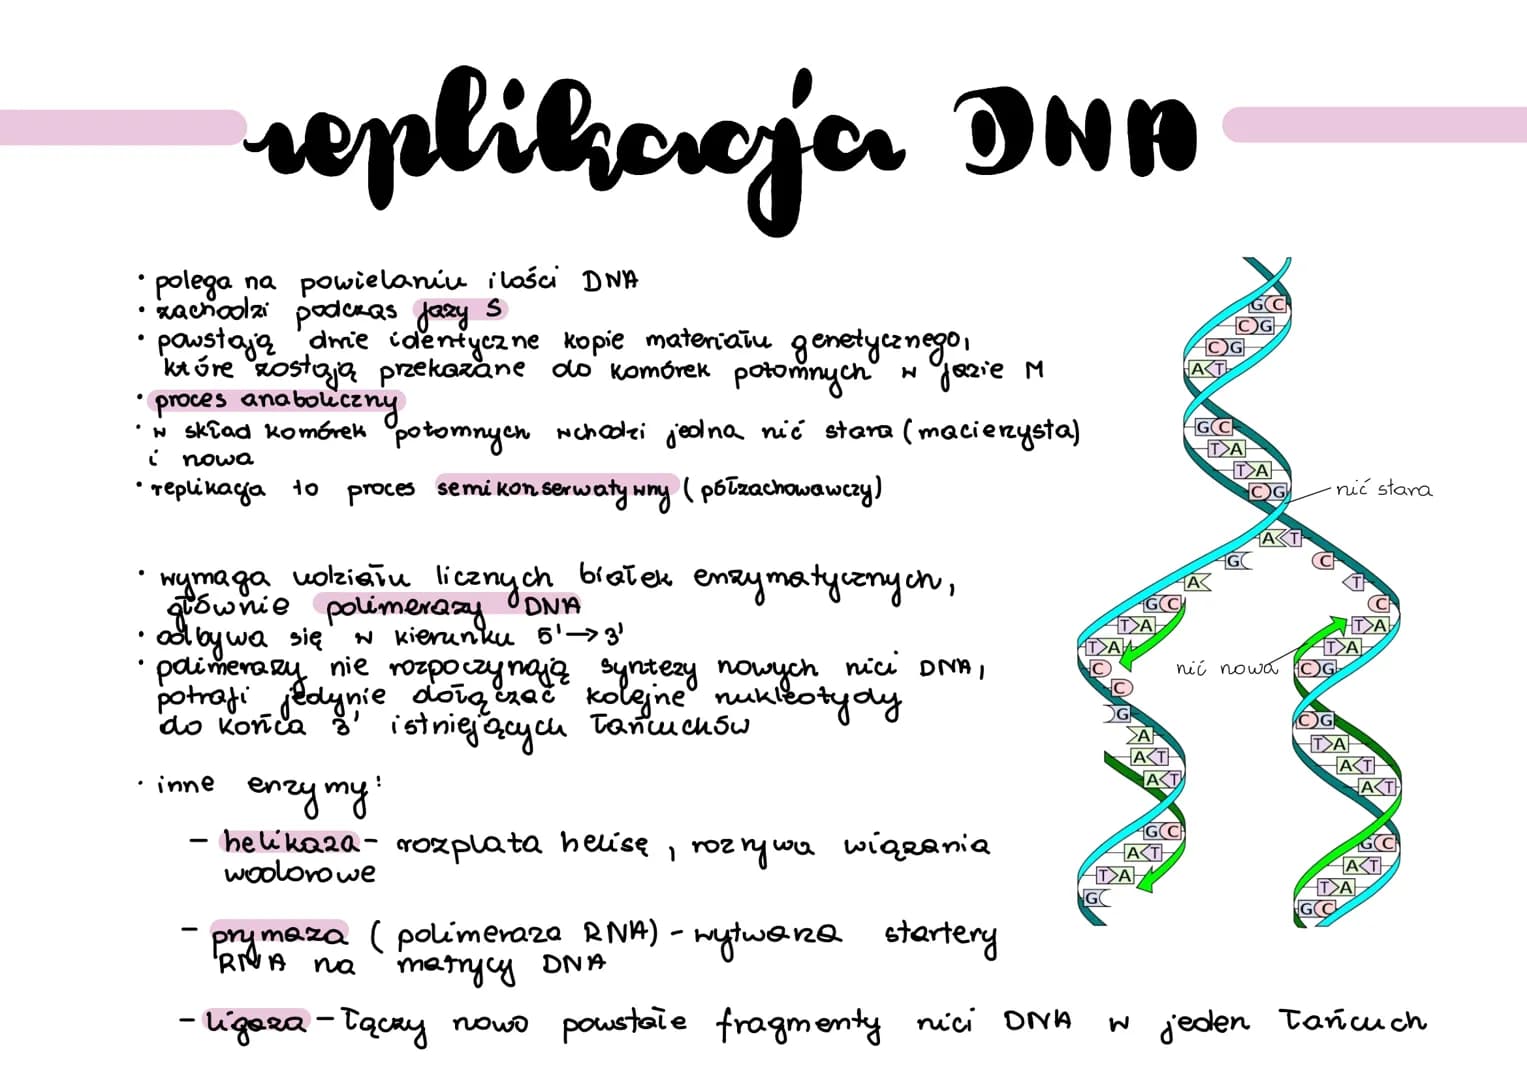 replikacja DNA
• polega na powielaniu ilości DNA
• zachodzi podczas fazy S
• powstają dwie identyczne kopie materiału genetycznego,
które zostają przekazane do komórek potomnych w fazie M
• proces anaboliczny
• w skład komórek potomnych wchodzi jedna nić stara (macierzysta)
i nowa
• replikacja to proces semikonserwatywny (półzachowawczy)
• wymaga udziału licznych białek enzymatycznych,
głównie polimerazy DNA
• odbywa się w kierunku 5'→3'
• polimerazy nie rozpoczynają syntezy nowych nici DNA,
potrafi jedynie dołączać kolejne nukleotydy
do końca 3' istniejących łańcuchów
• inne enzymy:
- helikaza - rozplata helisę, rozrywa wiązania
wodorowe
- prymaza (polimeraza RNA) - wytwarza startery
RNA na matrycy DNA
- ligaza - łączy nowo powstałe fragmenty nici DNA w jeden łańcuch
GC
CG
CG
AT
GC
TA
TA
CG
nić stara
AT
GC
C
A
T
GC
C
TA
TA
TA
TA
C
nić nowa
CG
C
G
CG
A
TA
AT
AT
AT
AT
GC
GC
AT
AT
TA
TA
G
GC